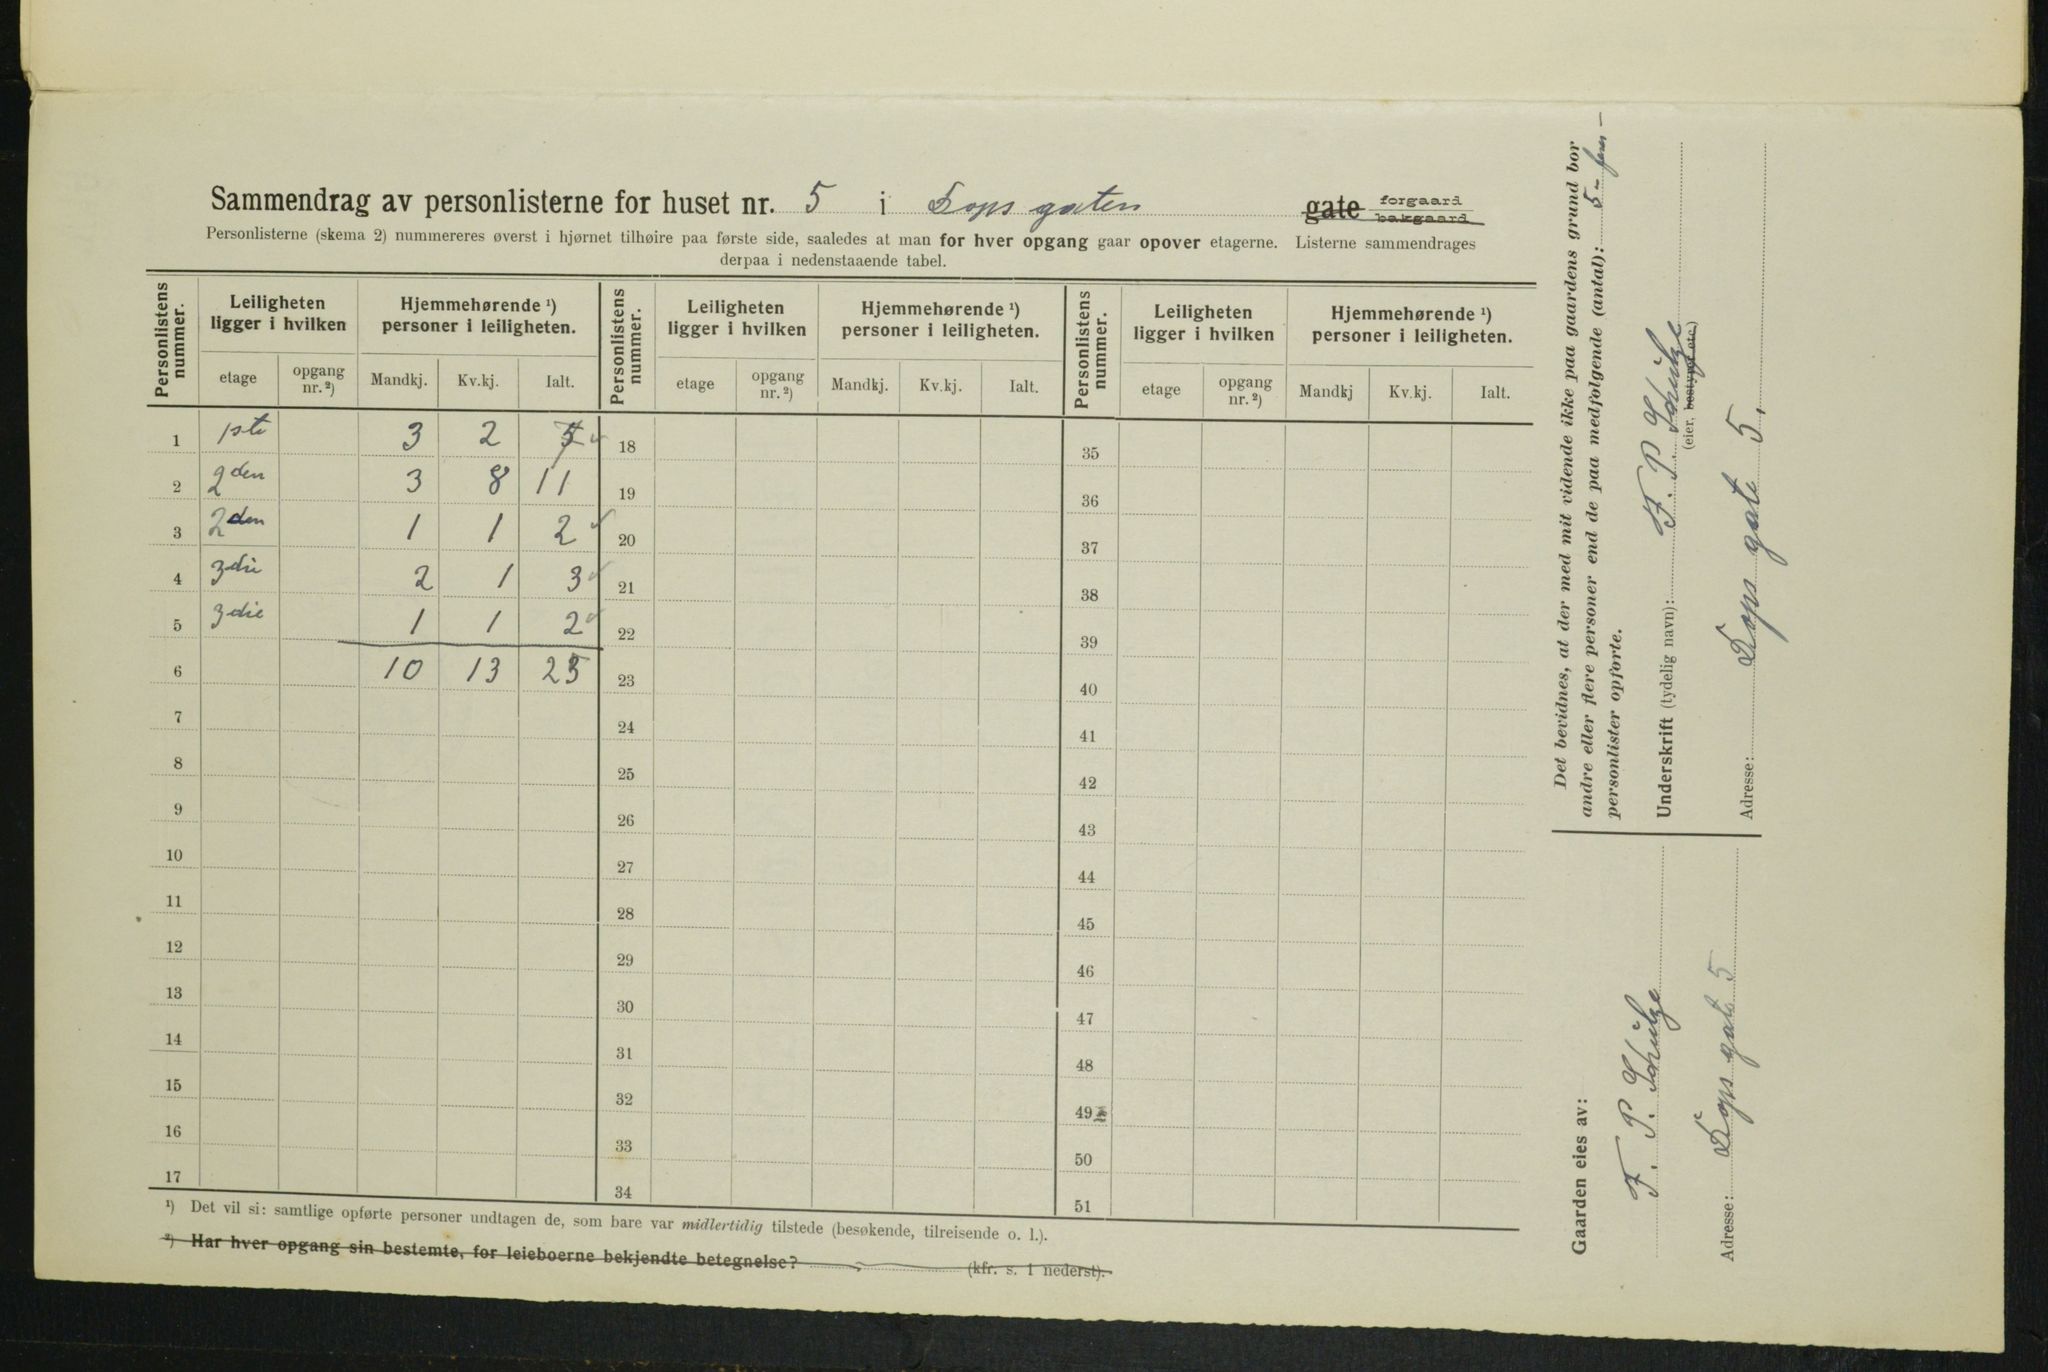 Sammendrag av personlisterne for huset nr. 5 i Dops gaten gate forgaard bakgaard
Personlisterne (skema 2) nummereres øverst i hjørnet tilhøire paa første side, saaledes at man for hver opgang gaar opover etagerne. Listerne sammendrages
derpaa i nedenstaaende tabel.
Personlistens nummer. Leiligheten ligger i hvilken Hjemmehørende ¹) personer i leiligheten. Personlistens nummer. Leiligheten ligger i hvilken Hjemmehørende ¹) personer i leiligheten. Personlistens nummer. Leiligheten ligger i hvilken Hjemmehørende ¹) personer i leiligheten.
etage opgang nr. ²) Mandkj. Kv.kj. Ialt. etage opgang nr. ²) Mandkj. Kv.kj. Ialt. etage opgang nr. ²) Mandkj Kv.kj. Ialt.
1 1ste 3 2 5 18 35
2 2den 3 8 11 19 36
3 2den 1 1 2 20 37
4 3die 2 1 3 21 38
5 3die 1 1 2 22 39
6 10 13 23 23 40
7 24 41
8 25 42
9 26 43
10 27 44
11 28 45
12 29 46
13 30 47
14 31 48
15 32 49
16 33 50
17 34 51
¹) Det vil si: samtlige opførte personer undtagen de, som bare var midlertidig tilstede (besøkende, tilreisende o. l.).
²) Har hver opgang sin bestemte, for leieboerne bekjendte betegnelse? (kfr. s. 1 nederst).
Det bevidnes, at der med mit vidende ikke paa gaardens grund bor
andre eller flere personer end de paa medfølgende (antal): 5 - fem -
personlister opførte.
Underskrift (tydelig navn): F. P. Schülze
(eier, bestyrer etc.)
Adresse: Dops gate 5.
Gaarden eies av:
F. P. Schülze
Adresse: Dops gate 5